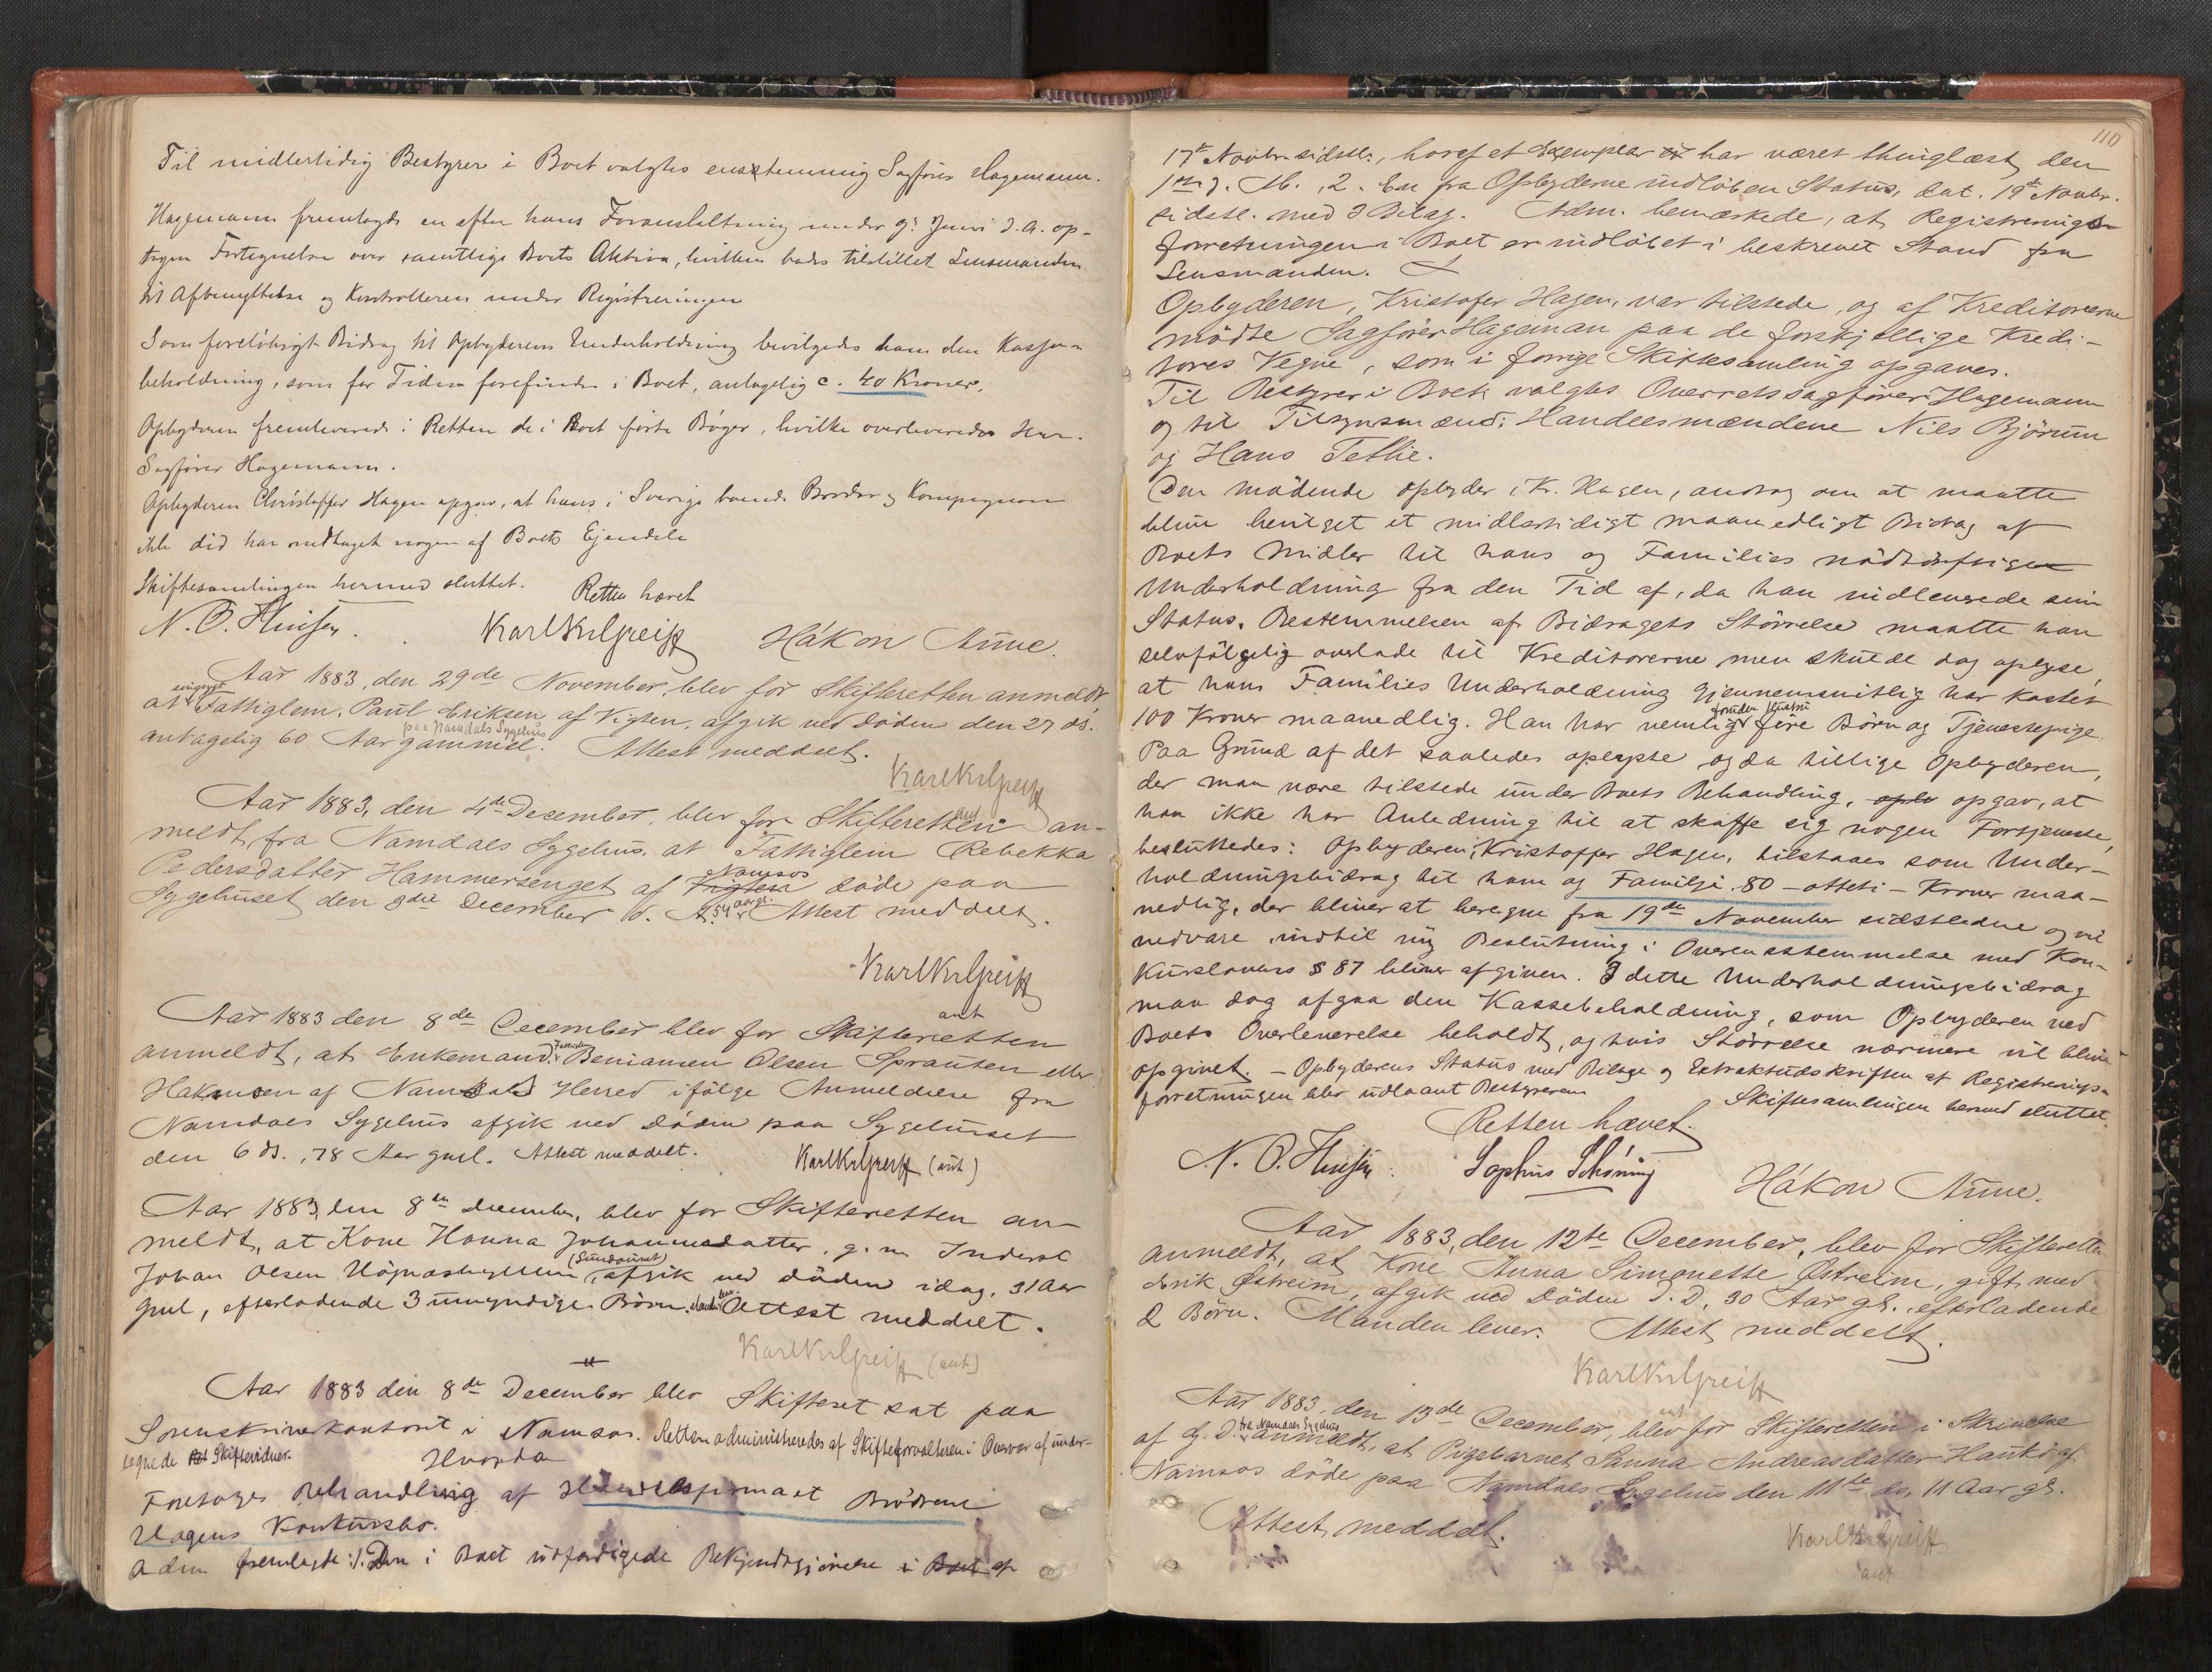 Til midlertidig Bestyrer i Boet valgtes enstemmig Sagfører Hagemann.
Hagemann fremlagde en efter hans Foranstaltning under 9: Juni d. A. op-
tagen Fortegnelse over samtlige Boets Aktiva, hvilken bades tilstillet Lensmanden
til Afbenyttelse og Kontrolleren under Registreringen
Som foreløbigt Bidrag til Opbyderens Underholdning bevilgedes ham den Kasse-
beholdning, som for Tiden forefindes i Boet, antagelig c. 40 Kroner.
Opbyderen fremleverede i Retten de i Boet førte Bøger, hvilke overleveredes Hr.
Sagfører Hagemann.
Opbyderen Christoffer Hagen opgav, at hans i Sverige boende Broder og Kompagnon
ikke did har modtaget nogen af Boets Ejendele
Skiftesamlingen hermed sluttet. Retten hævet
N. O. Karl Kr Greiff Håkon Aune.
Aar 1883, den 29de November, blev for Skifteretten anmeldt
at ugift Fattiglem, Paul Eriksen af Vigten, afgik ved Døden den 27 ds.
paa Namdals Sygehus
antagelig 60 Aar gammel. Attest meddelt.
Karl Kr Greiff
aut
Aar 1883, den 4de December, blev for Skifteretten an-
meldt fra Namdals Sygehus, at Fattiglem Rebekka
Pedersdatter Hammersenget af Vigten Namsos døde paa
Sygehuset den 3die December d. A. 54 aargl. Attest meddelt.
Karl Kr Greiff
aut
Aar 1883 den 8de December blev for Skifteretten
anmeldt, at Enkemand, Fattiglem Beniamen Olsen Sprauten eller
Hakonsen af Namdals Herred ifølge Anmeldelse fra
Namdals Sygehus afgik ved Døden paa Sygehuset
den 6 ds., 78 Aar gml. Attest meddelt. Karl Kr Greiff (aut)
Aar 1883, den 8de December, blev for Skifteretten an-
meldt, at Kone Hanna Johannesdatter, g. m. Inderst
Johan Olsen (Sundsunet), afgik ved Døden idag, 31 Aar
gml, efterladende 3 umyndige Børn. Manden lever. Attest meddelt.
Karl Kr Greiff (aut)
Aar 1883 den 8de December blev Skifteret sat paa
Sorenskriverkontoret i Namsos. Retten administreredes af Skifteforvalteren i Overvær af under-
tegnede Ret Skiftevidner. Hvorda
Foretoges Behandling af Handelsfirmaet Brødrene
Hagens Konkursbo.
Adm fremlagde: 1. Den i Boet udfærdigede Bekjendtgjørelse i Boet af
110
17de Novbr. sidstl., hvoraf et Exemplar er har været thinglæst den
1ste d. M., 2. En fra Opbyderne indløben Status, dat. 19de Novbr.
sidstl. med 3 Bilag. Adm. bemærkede, at Registrerings-
forretningen i Boet er indløbet i beskrevet Stand fra
Lensmanden.
Opbyderen, Kristofer Hagen, var tilstede, og af Kreditorerne
mødte Sagfører Hageman paa de forskjellige Kredi-
tores Vegne, som i forrige Skiftesamling opgaves.
Til Bestyrer i Boet valgtes Overretssagfører Hagemann
og til Tilsynsmænd: Handelsmændene Nils Bjørum
og Hans Tetlie.
Den mødende Opbyder, Kr. Hagen, androg om at maatte
blive bevilget et midlertidigt maanedligt Bidrag af
Boets Midler til hans og Families nødtørftige
Underholdning fra den Tid af, da han indleverede sin
Status. Bestemmelsen af Bidragets Størrelse maatte han
selvfølgelig overlade til Kreditorerne men skulde dog oplyse,
at hans Families Underholdning gjennemsnitlig har kostet
100 Kroner maanedlig. Han har nemlig foruden Hustru fire Børn og Tjenestepige.
Paa Grund af det saaledes oplyste og da tillige Opbyderen,
der maa være tilstede under Boets Behandling, oplv opgav, at
han ikke har Anledning til at skaffe sig nogen Fortjeneste,
besluttedes: Opbyderen, Kristoffer Hagen, tilstaaes som Under-
holdningsbidrag til ham og Familje 80 – otteti – Kroner maa-
nedlig, der bliver at beregne fra 19de November sidstledne og vil
vedvare indtil ny Beslutning i Overensstemmelse med Kon-
kurslovens § 87 bliver afgiven. I dette Underholdningsbidrag
maa dog afgaa den Kassebeholdning, som Opbyderen ved
Boets Overleverelse beholdt, og hvis Størrelse nærmere vil blive
opgivet. – Opbyderens Status med Bilage og Extraktudskriften af Registrerings-
forretningen blev udlaant Bestyreren Skiftesamlingen hermed sluttet.
Retten hævet.
N. O. Sophus Schöning Håkon Aune.
Aar 1883, den 12te December, blev for Skifteretten
anmeldt, at Kone Anna Simonette Østreim, gift med
Erik Østreim, afgik ved Døden d. D., 30 Aar gl., efterladende
2 Børn. Manden lever. Attest meddelt.
Karl Kr Greiff
aut
Aar 1883, den 13de December, blev for Skifteretten i Skrivelse
af g. D. fra Namdals Sygehus anmeldt, at Pigebarnet Sanna Andreasdatter Hauki af
Namsos døde paa Namdals Sygehus den 11te ds, 11 Aar gl.
Attest meddelt.
Karl Kr Greiff
aut